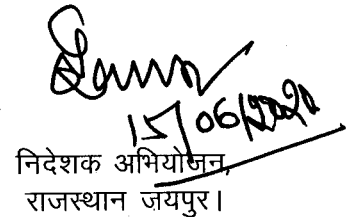 15/06/2020
निदेशक अभियोजन,
राजस्थान जयपुर।